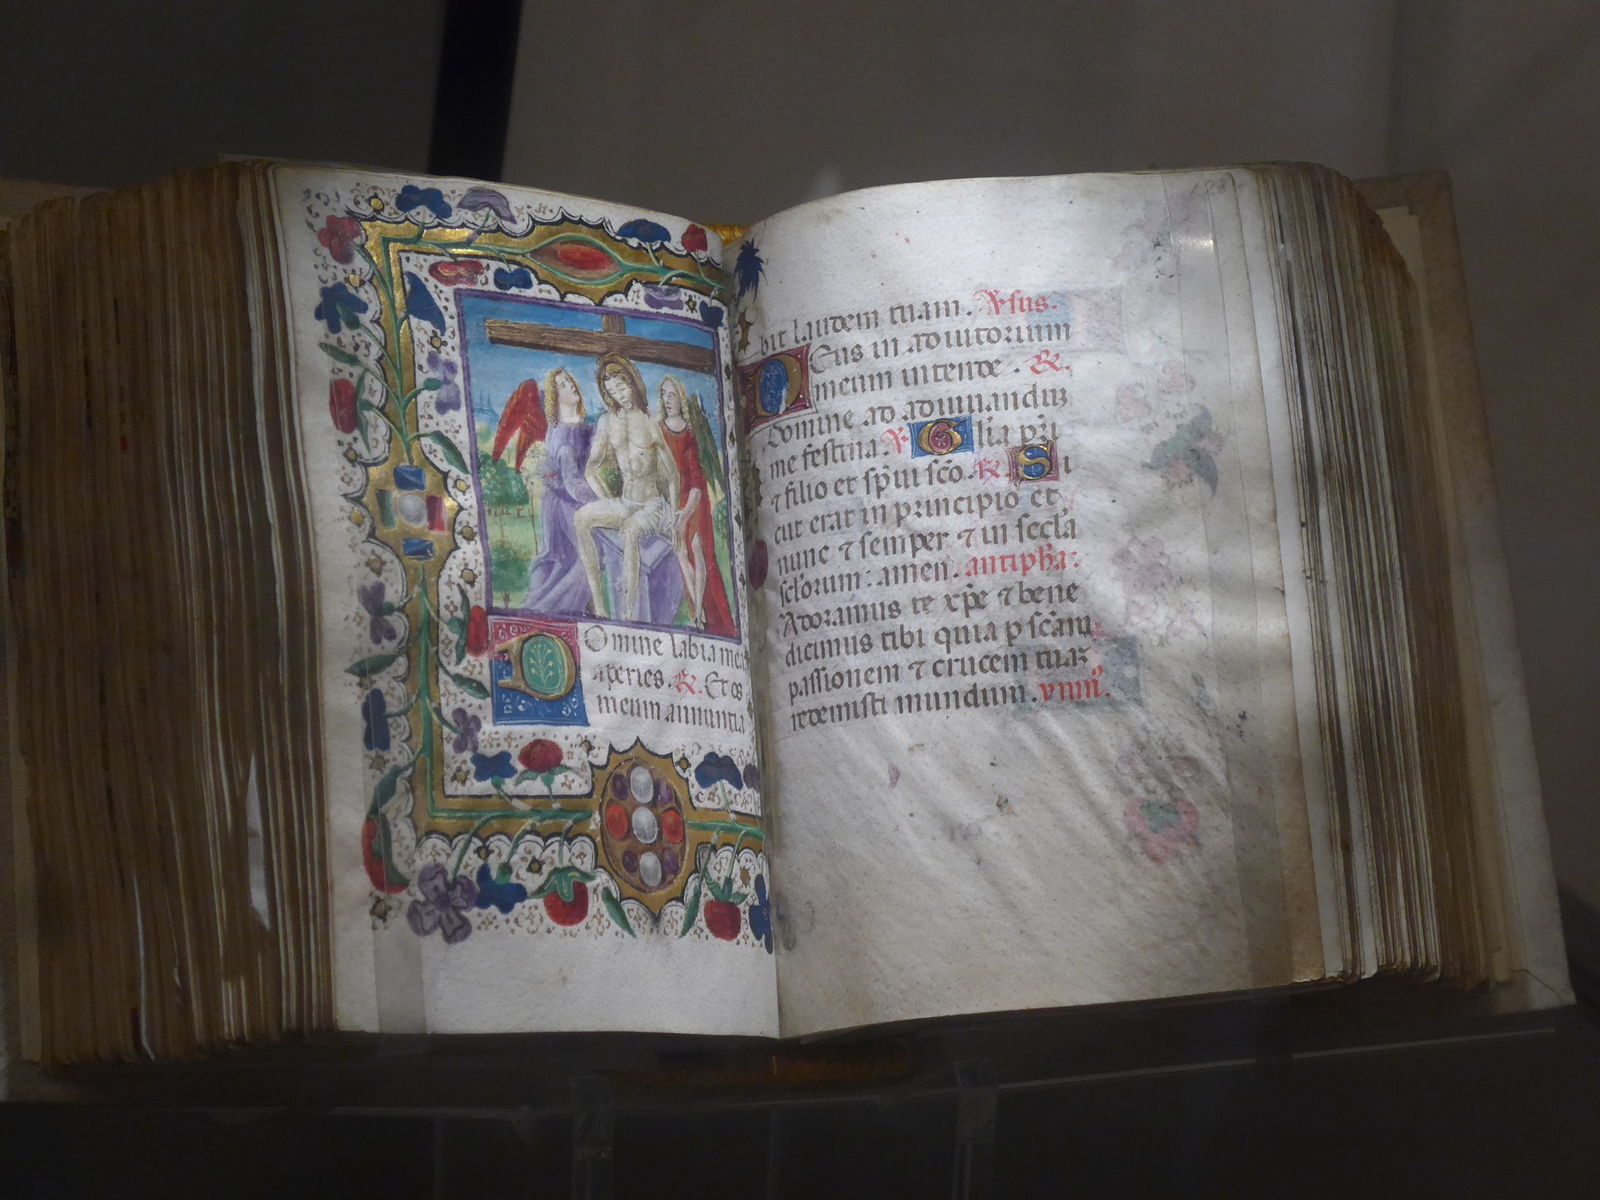 Domine labia mea
aperies. R. Et os
meum annuntia
bit laudem tuam. Vsus.
Deus in adiutorium
meum intende. R.
Domine ad adiuuandum
me festina. V Glia pri
⁊ filio et spui sco. R Si
cut erat in principio et
nunc ⁊ semper ⁊ in secla
sclorum: amen. antipha:
Adoramus te xpe ⁊ bene
dicimus tibi quia p scam
passionem ⁊ crucem tuaz
redemisti mundum.
128